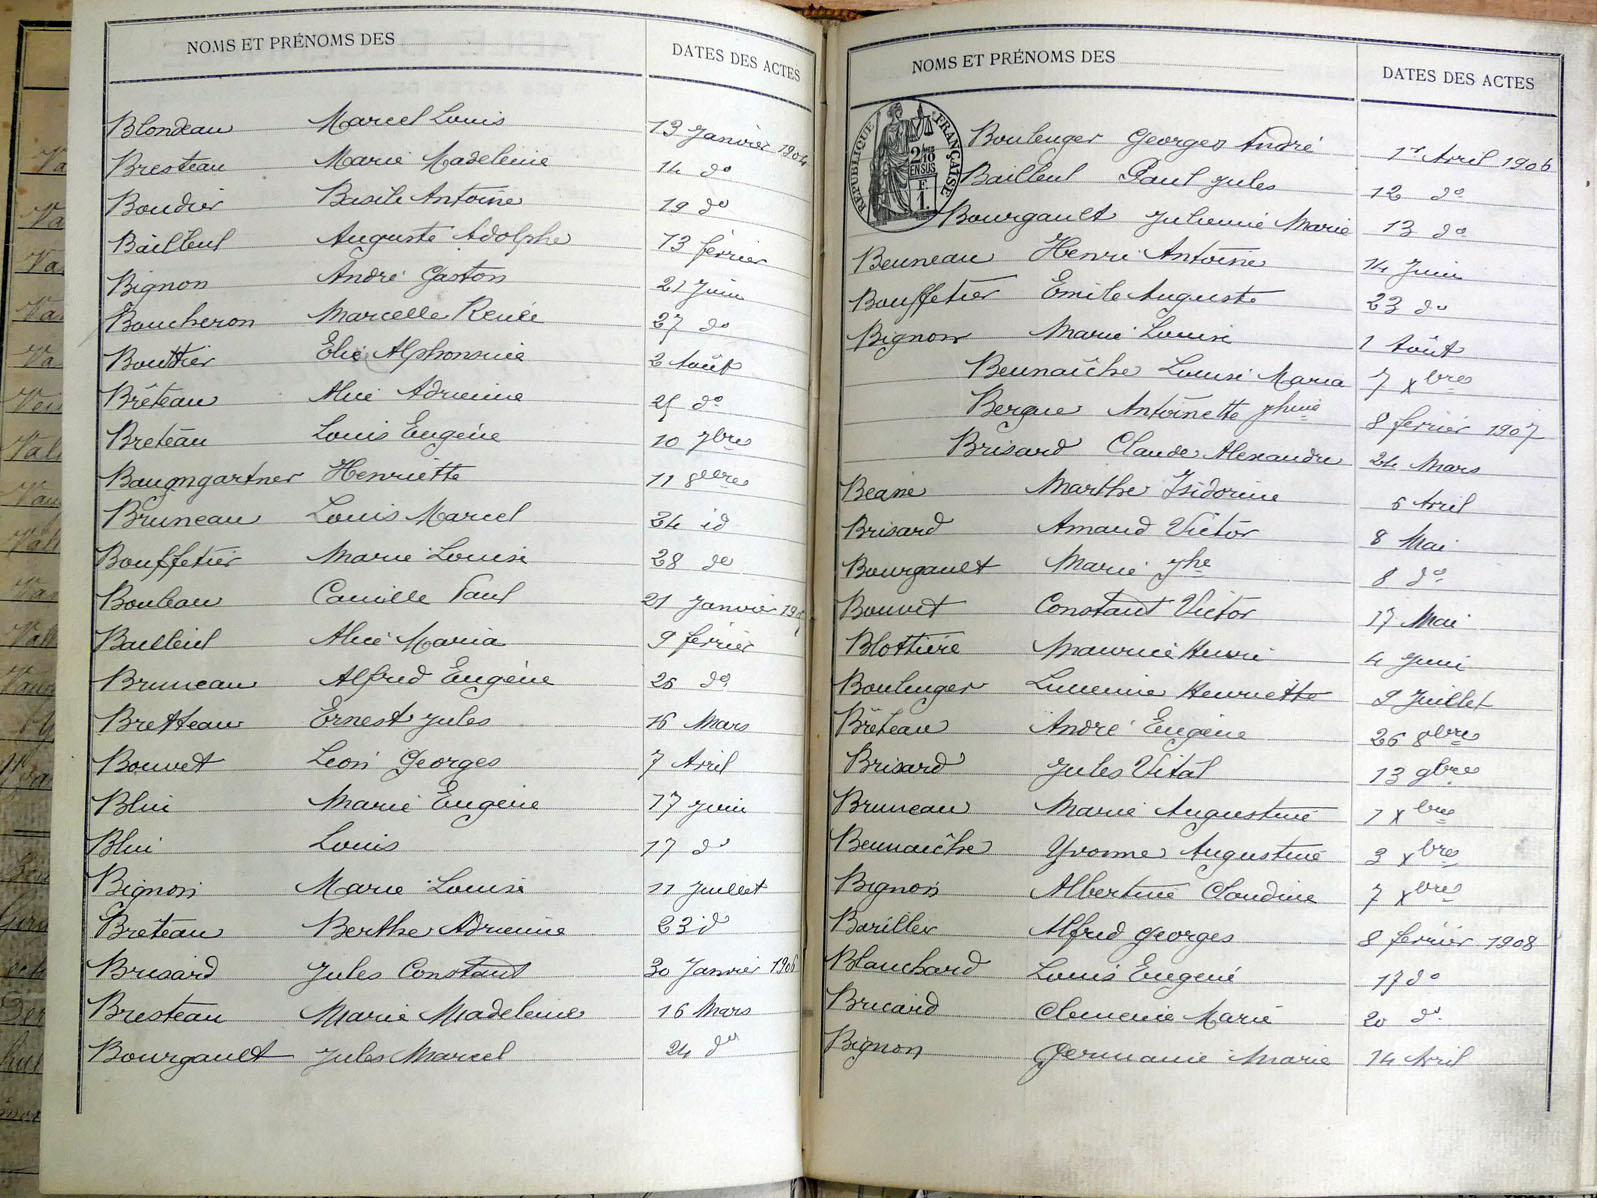 NOMS ET PRÉNOMS DES DATES DES ACTES
Blondeau Marcel Louis 13 Janvier 1904
Bresteau Marie Madeleine 14 do
Boudier Basile Antoine 19 do
Bailleul Auguste Adolphe 13 février
Bignon André Gaston 21 Juin
Boucheron Marcelle Renée 27 do
Bouttier Elie Alphonsine 2 Août
Brêteau Alice Adrienne 25 do
Breteau Louis Eugène 10 7bre
Baumgartner Henriette 11 8bre
Bruneau Louis Marcel 24 id
Bouffetier Marie Louise 28 do
Bouleau Camille Paul 21 Janvier
Bailleul Alice Maria 9 février
Bruneau Alfred Eugène 26 do
Bretteau Ernest Jules 16 Mars
Bouvet Léon Georges 7 Avril
Blin Marie Eugène 17 Juin
Blin Louis 17 do
Bignon Marie Louise 11 Juillet
Breteau Berthe Adrienne 23 do
Brisard Jules Constant 30 Janvier 1906
Bresteau Marie Madeleine 16 Mars
Bourgault Jules Marcel 24 do
NOMS ET PRÉNOMS DES DATES DES ACTES
RÉPUBLIQUE FRANÇAISE
2/10 EN SUS
F. 1.
Boulenger Georges André 1er Avril 1906
Bailleul Paul Jules 12 do
Bourgault Julienne Marie 13 do
Beuneau Henri Antoine 14 Juin
Bouffetier Emile Auguste 23 do
Bignon Marie Louise 1 Août
Beunaîche Louise Maria 7 Xbre
Bergue Antoinette Jhine 8 février 1907
Brisard Claude Alexandre 24 Mars
Beane Marthe Isidorine 5 Avril
Brisard Amand Victor 8 Mai
Bourgault Marie Jhe 8 do
Bouvet Constant Victor 17 Mai
Blottière Maurice Henri 4 Juin
Boulenger Lucienne Henriette 9 Juillet
Brêteau André Eugène 26 8bre
Brisard Jules Vital 13 9bre
Bruneau Marie Augustine 1 Xbre
Beunaîche Yvonne Augustine 3 Xbre
Bignon Albertine Claudine 7 Xbre
Bariller Alfred Georges 8 février 1908
Blanchard Louis Eugène 17 do
Bricard Clémence Marie 20 do
Bignon Germaine Marie 14 Avril